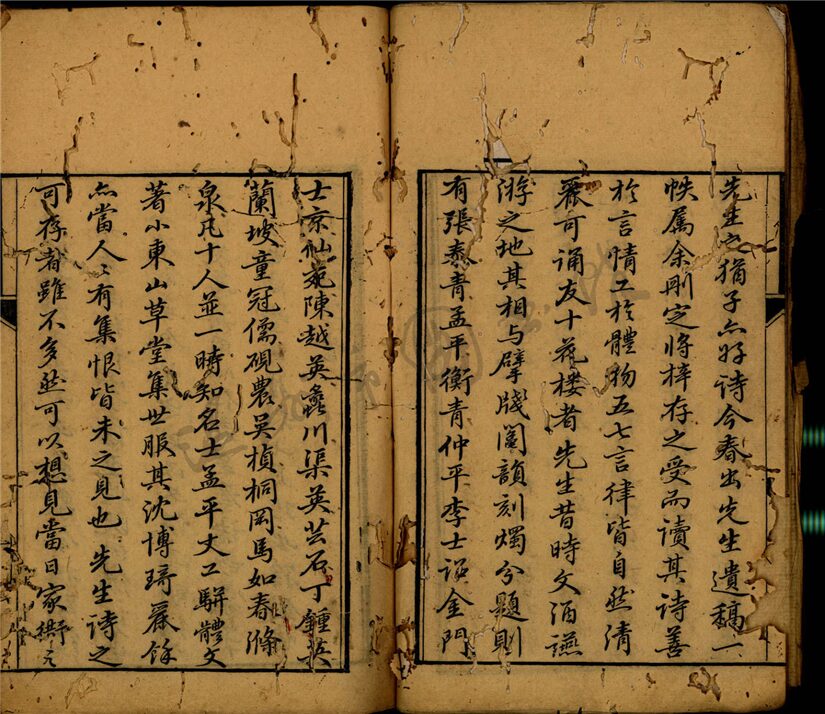 先生之猶子亦好詩今春出先生遺稿一
帙属余刪定将梓存之受而讀其詩善
於言情工於體物五七言律皆自然清
麗可誦友十花楼者先生昔時文酒讌
游之地其相与擘牋鬮韻刻燭分題則
有張燾青孟平衡青仲平李士詔金門
士京仙苑陳越英蠡川渠英芸石丁鍾英
蘭坡童冠儒硯農吴楨桐岡馬如春滌
泉凡十人並一時知名士孟平丈工駢體文
著小東山草堂集世服其沈博琦麗餘
亦當人〻有集恨皆未之見也 先生詩之
可存者雖不多然可以想見當日家衖之